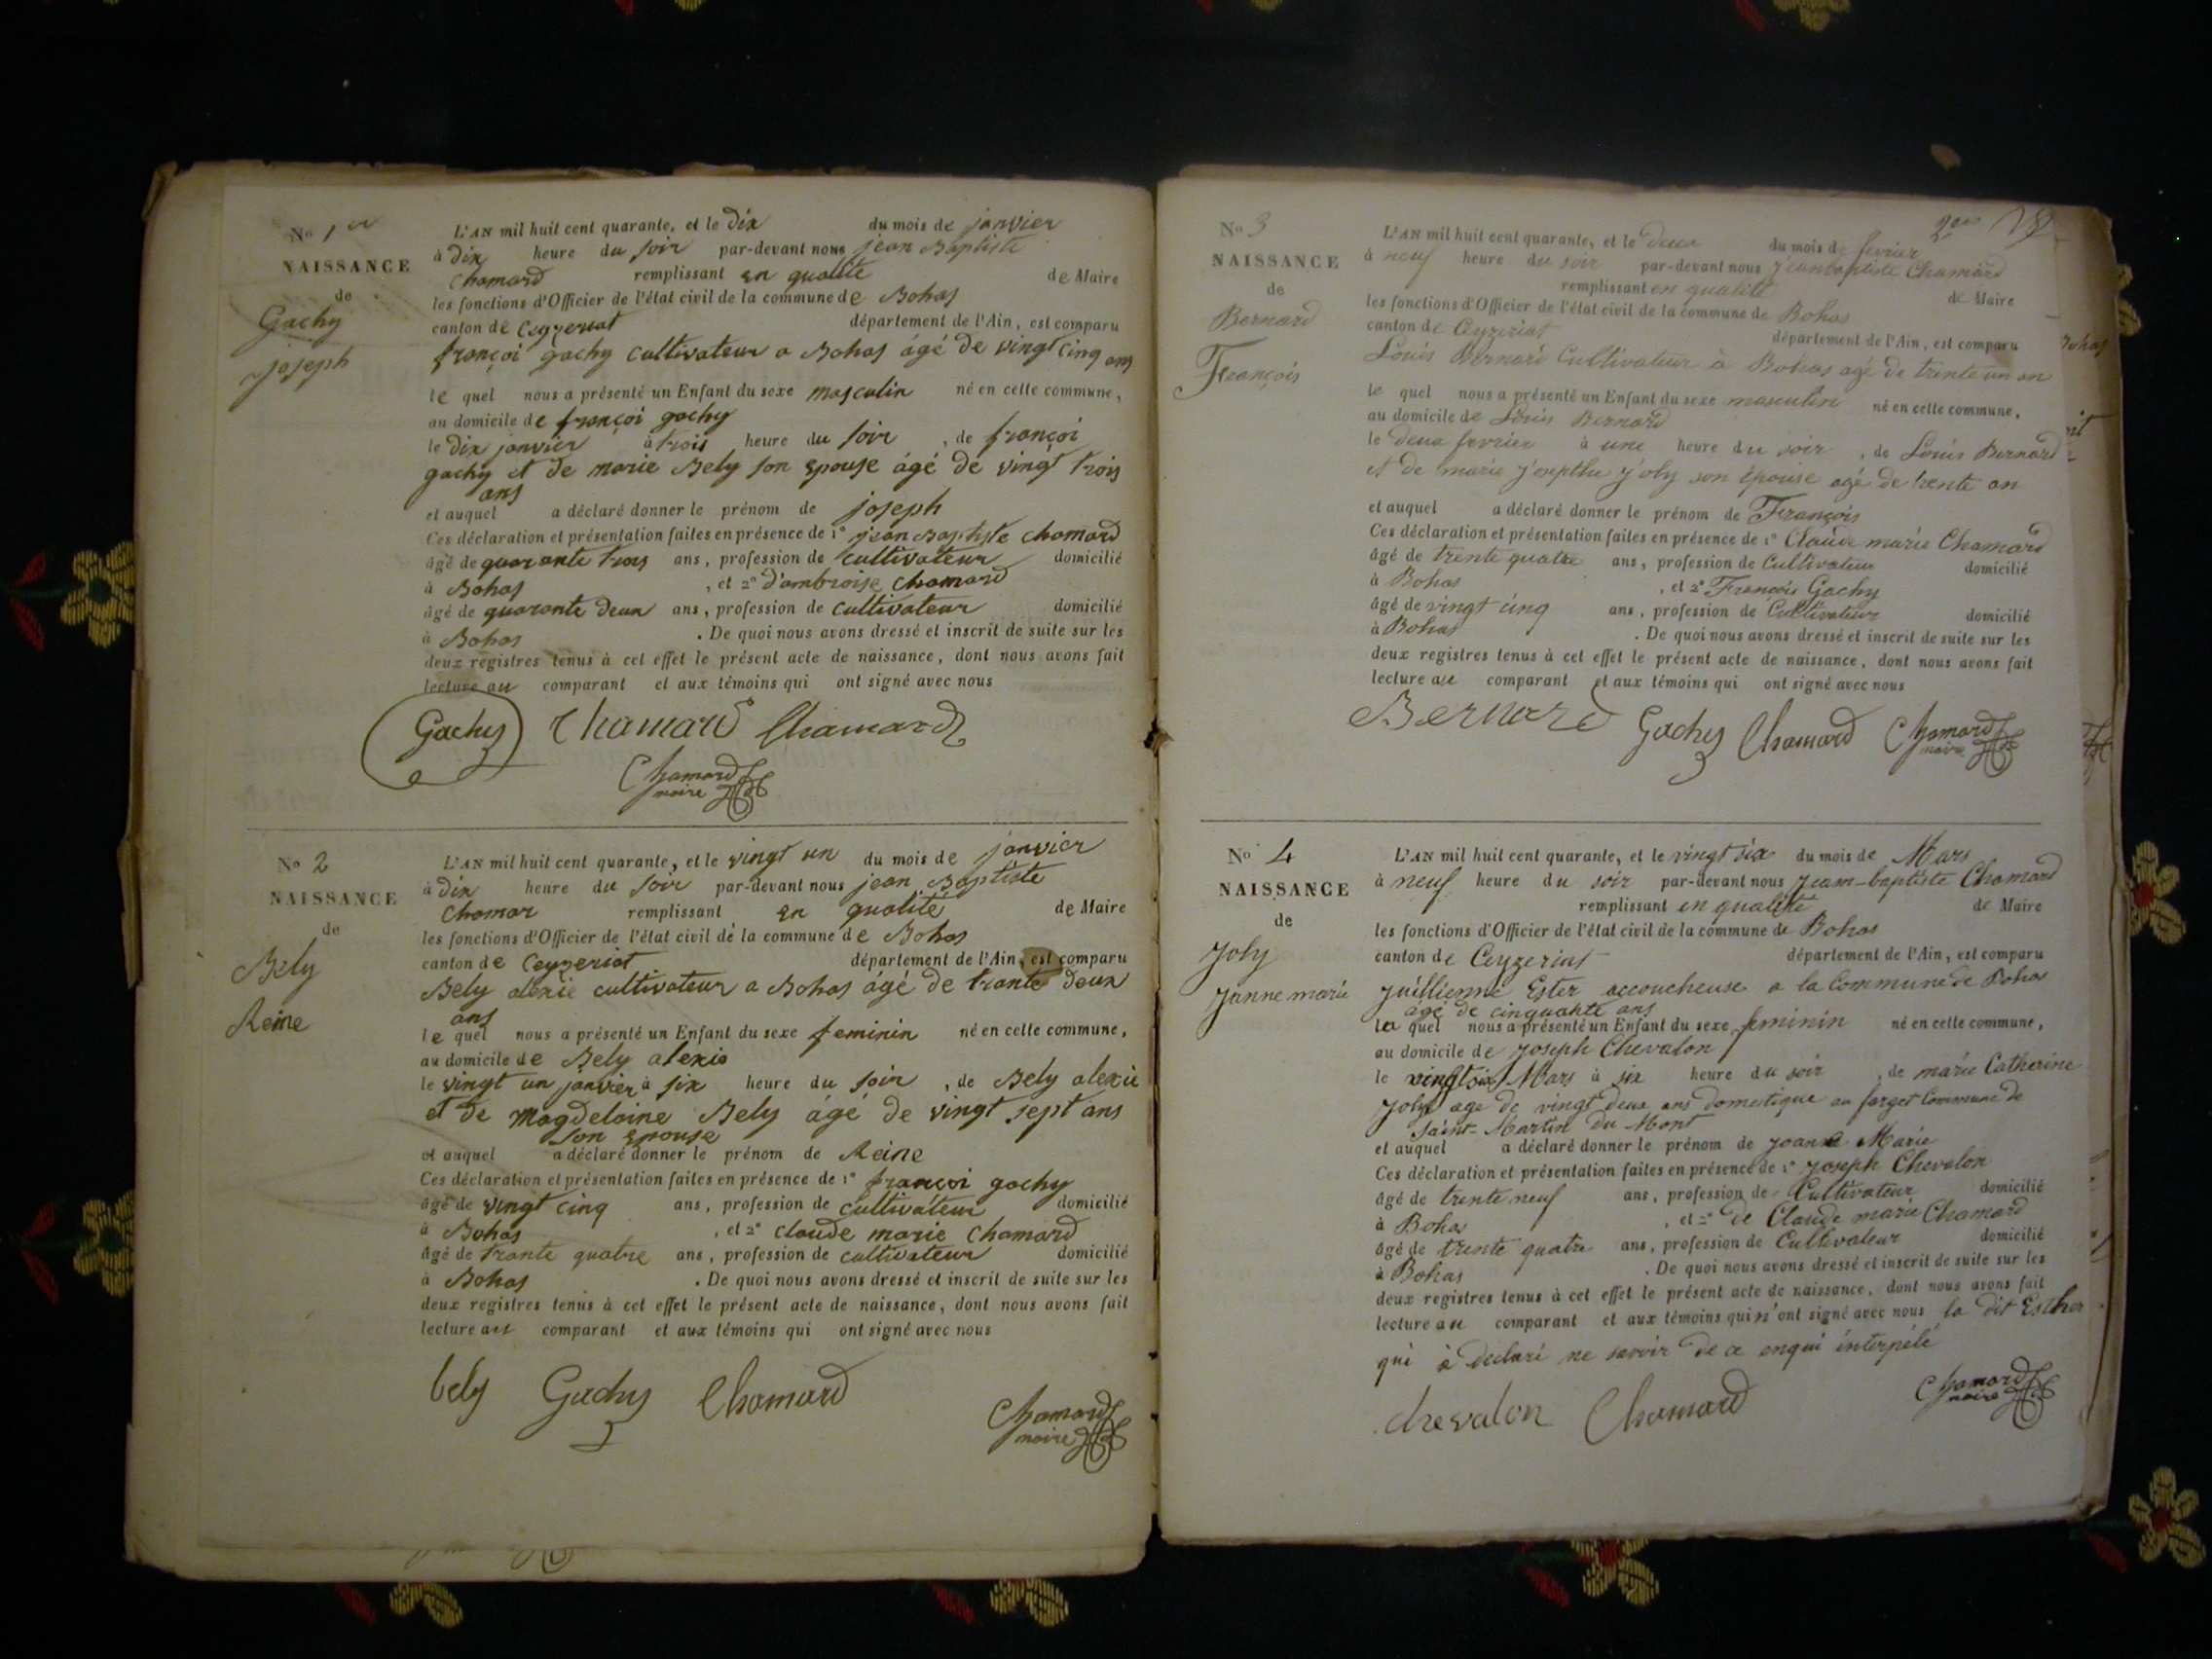 No 1er
NAISSANCE
de
Gachy
joseph
L'AN mil huit cent quarante, et le dix du mois de janvier
à dix heure du soir par-devant nous jean Baptiste
chamard remplissant en qualité de Maire
les fonctions d'Officier de l'état civil de la commune de Bohas
canton de Ceyzeriat département de l'Ain, est comparu
françoi gachy cultivateur a Bohas ágé de vingt cinq ans
le quel nous a présenté un Enfant du sexe masculin né en cette commune,
au domicile de françoi gachy
le dix janvier à trois heure du soir, de françoi
gachy et de marie Bely son epouse ágé de vingt trois
ans
et auquel a déclaré donner le prénom de joseph
Ces déclaration et présentation faites en présence de 1º jean Baptiste chamard
âgé de quarante trois ans, profession de cultivateur domicilié
à Bohas, et 2º d'ambroise chamard
âgé de quarante deux ans, profession de cultivateur domicilié
à Bohas. De quoi nous avons dressé et inscrit de suite sur les
deux registres tenus à cet effet le présent acte de naissance, dont nous avons fait
lecture au comparant et aux témoins qui ont signé avec nous
Gachy Chamard Chamard
Chamard
maire
No 2
NAISSANCE
de
Bely
Reine
L'AN mil huit cent quarante, et le vingt un du mois de janvier
à dix heure du soir par-devant nous jean Baptiste
chamar remplissant en qualité de Maire
les fonctions d'Officier de l'état civil de la commune de Bohas
canton de Ceyzeriat département de l'Ain, est comparu
Bely alexie cultivateur a Bohas ágé de trante deux
ans
le quel nous a présenté un Enfant du sexe feminin né en cette commune,
au domicile de Bely alexis
le vingt un janvier à six heure du soir, de Bely alexie
et de magdelaine Bely ágé de vingt sept ans
son epouse
et auquel a déclaré donner le prénom de Reine
Ces déclaration et présentation faites en présence de 1º françoi gachy
âgé de vingt cinq ans, profession de cultivateur domicilié
à Bohas, et 2º claude marie chamard
âgé de trante quatre ans, profession de cultivateur domicilié
à Bohas. De quoi nous avons dressé et inscrit de suite sur les
deux registres tenus à cet effet le présent acte de naissance, dont nous avons fait
lecture au comparant et aux témoins qui ont signé avec nous
bely Gachy Chamard
Chamard
maire
No 3
NAISSANCE
de
Bernard
François
L'AN mil huit cent quarante, et le deux du mois de fevrier
à neuf heure du soir par-devant nous Jeanbaptiste Chamard
remplissant en qualité de Maire
les fonctions d'Officier de l'état civil de la commune de Bohas
canton de Ceyzeriat département de l'Ain, est comparu
Louis Bernard Cultivateur à Bohas agé de trente un an
le quel nous a présenté un Enfant du sexe masculin né en cette commune,
au domicile de Louis Bernard
le deux fevrier à une heure du soir, de Louis Bernard
et de marie josepthe joly son épouse agé de trente an
et auquel a déclaré donner le prénom de François
Ces déclaration et présentation faites en présence de 1º Claude marie Chamard
âgé de trente quatre ans, profession de Cultivateur domicilié
à Bohas, et 2º François Gachy
âgé de vingt cinq ans, profession de Cultivateur domicilié
à Bohas. De quoi nous avons dressé et inscrit de suite sur les
deux registres tenus à cet effet le présent acte de naissance, dont nous avons fait
lecture au comparant et aux témoins qui ont signé avec nous
Bernard Gachy Chamard Chamard
maire
No 4
NAISSANCE
de
Joly
Janne marie
L'AN mil huit cent quarante, et le vingt six du mois de Mars
à neuf heure du soir par-devant nous Jeam-baptiste Chamard
remplissant en qualité de Maire
les fonctions d'Officier de l'état civil de la commune de Bohas
canton de Ceyzeriat département de l'Ain, est comparu
Ester accoucheuse a la Commune de Bohas
âgé de cinquante ans
la quel nous a présenté un Enfant du sexe feminin né en cette commune,
au domicile de Joseph Chevalon
le vingt six Mars à six heure du soir, de marie Catherine
Joly age de vingt deux ans domestique au farget Commune de
Saint-Martin Du Mont
et auquel a déclaré donner le prénom de Joanne Marie
Ces déclaration et présentation faites en présence de 1º Joseph Chevalon
âgé de trente neuf ans, profession de Cultivateur domicilié
à Bohas, et 2º de Claude marie Chamard
âgé de trente quatre ans, profession de Cultivateur domicilié
à Bohas. De quoi nous avons dressé et inscrit de suite sur les
deux registres tenus à cet effet le présent acte de naissance, dont nous avons fait
lecture au comparant et aux témoins qui n'ont signé avec nous la dit Esther
qui à declaré ne savoir de ce enqui interpélé
chevalon Chamard
Chamard
maire